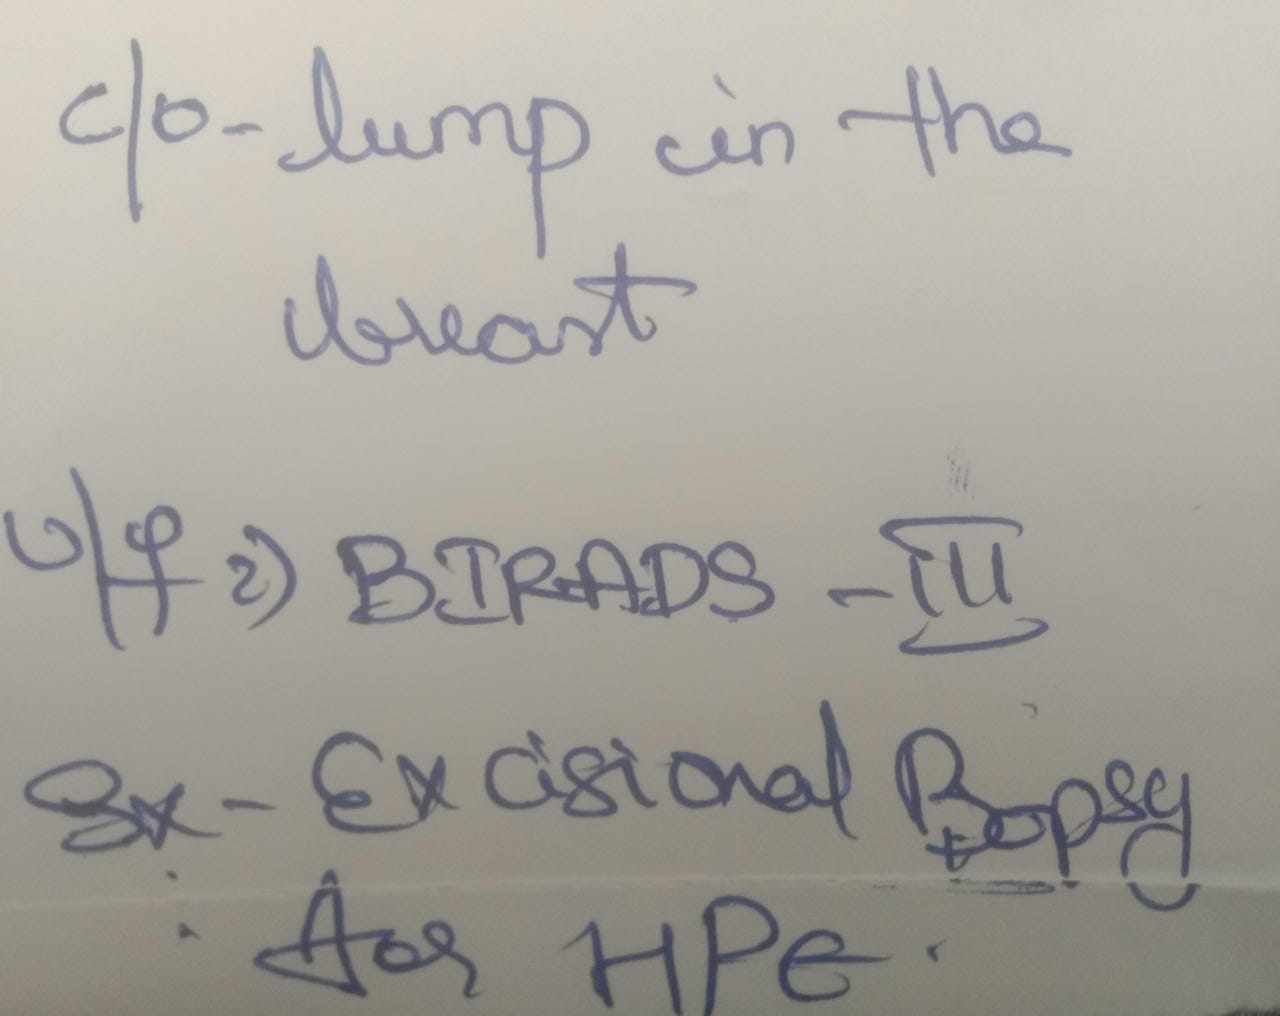 c/o - lump in the
breast
BIRADS - III
Sx - Excisional Biopsy
for HPE.